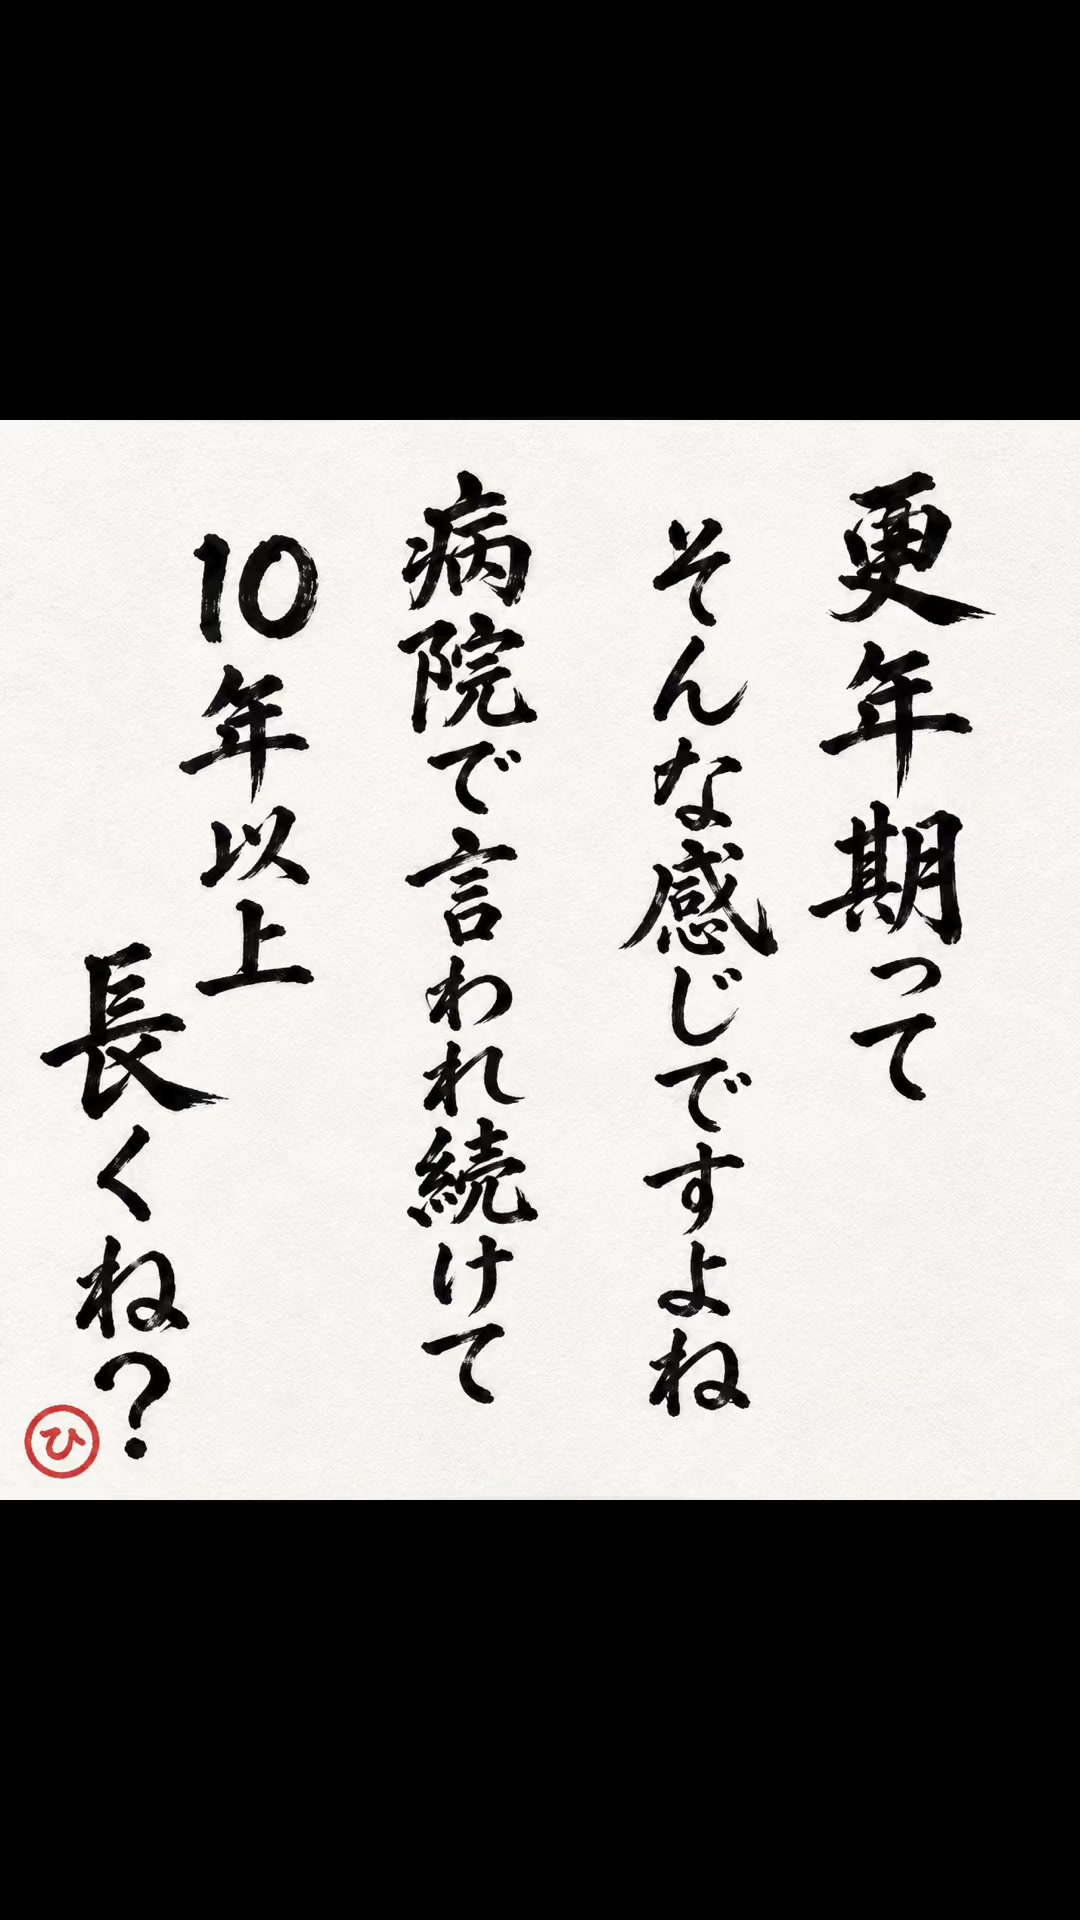 更年期って
そんな感じですよね
病院で言われ続けて
10年以上
長くね？
ひ